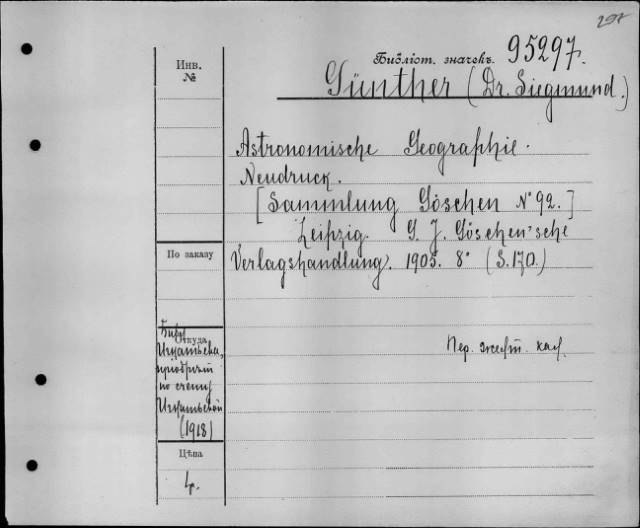 297
Инв.
№
Библіот. значекъ. 95297.
Günther (Dr. Siegmund.)
Astronomische Geographie.
Neudruck.
[Sammlung Göschen № 92.]
Leipzig. G. J. Göschen'sche
По заказу
Verlagshandlung. 1905. 8° (S. 170.)
Откуда
Игнатьева,
Пер. желт. кал.
по счету
Игнатьевой
(1918)
Цѣна
4.